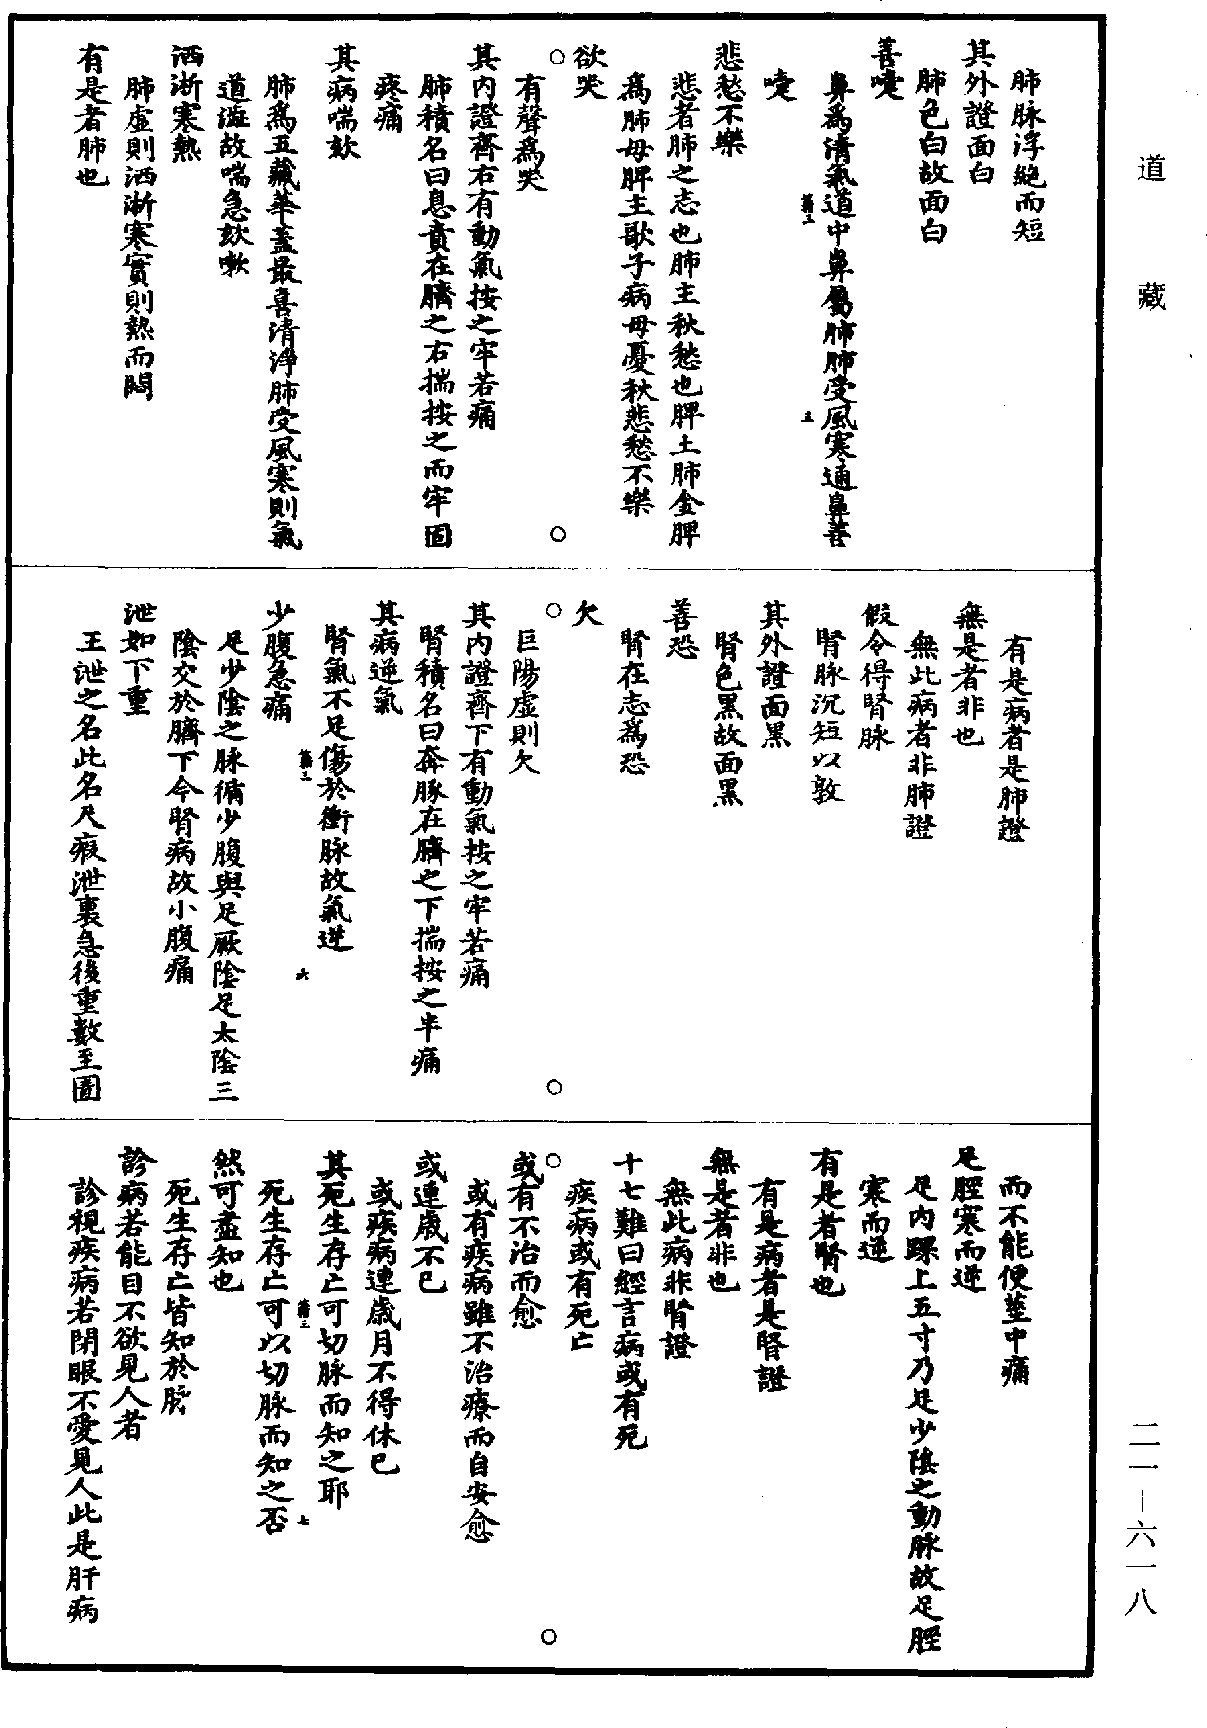 道藏
肺脉浮絕而短
其外證面白
肺色白故面白
善嚏
鼻爲清氣道中鼻屬肺肺受風寒通鼻善
嚏
悲愁不樂
悲者肺之志也肺主秋愁也脾土肺金脾
爲肺母脾主歌子病母憂秋悲愁不樂
欲哭
有聲爲哭
其內證齊右有動氣按之牢若痛
肺積名曰息賁在臍之右揣按之而牢固
疼痛
其病喘欬
肺爲五藏華蓋最喜清淨肺受風寒則氣
道澁故喘急欬嗽
洒淅寒熱
肺虛則洒淅寒實則熱而悶
有是者肺也
有是病者是肺證
無是者非也
無此病者非肺證
假令得腎脉
腎脉沉短以敦
其外證面黑
腎色黑故面黑
善恐
腎在志爲恐
欠
巨陽虛則欠
其內證齊下有動氣按之牢若痛
腎積名曰奔豚在臍之下揣按之牢痛
其病逆氣
腎氣不足傷於衝脉故氣逆
少腹急痛
足少陰之脉循少腹與足厥陰足太陰三
陰交於臍下今腎病故小腹痛
泄如下重
王泄之名此名大瘕泄裏急後重數至圊
而不能便莖中痛
足脛寒而逆
足內踝上五寸乃足少陰之動脉故足脛
寒而逆
有是者腎也
有是病者是腎證
無是者非也
無此病非腎證
十七難曰經言病或有死
疾病或有死亡
或有不治而愈
或有疾病雖不治療而自安愈
或連歲不已
或疾病連歲月不得休已
其死生存亡可切脉而知之耶
死生存亡可以切脉而知之否
然可盡知也
死生存亡皆知於脉
診病若能目不欲見人者
診視疾病若閉眼不愛見人此是肝病
二一－六一八